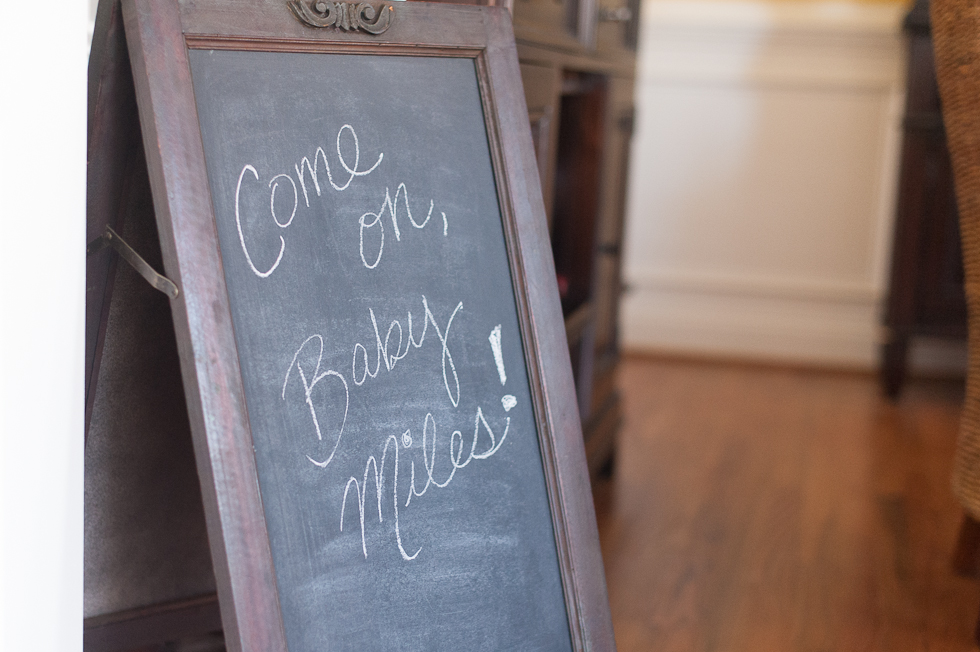 Come
on,
Baby
Miles!